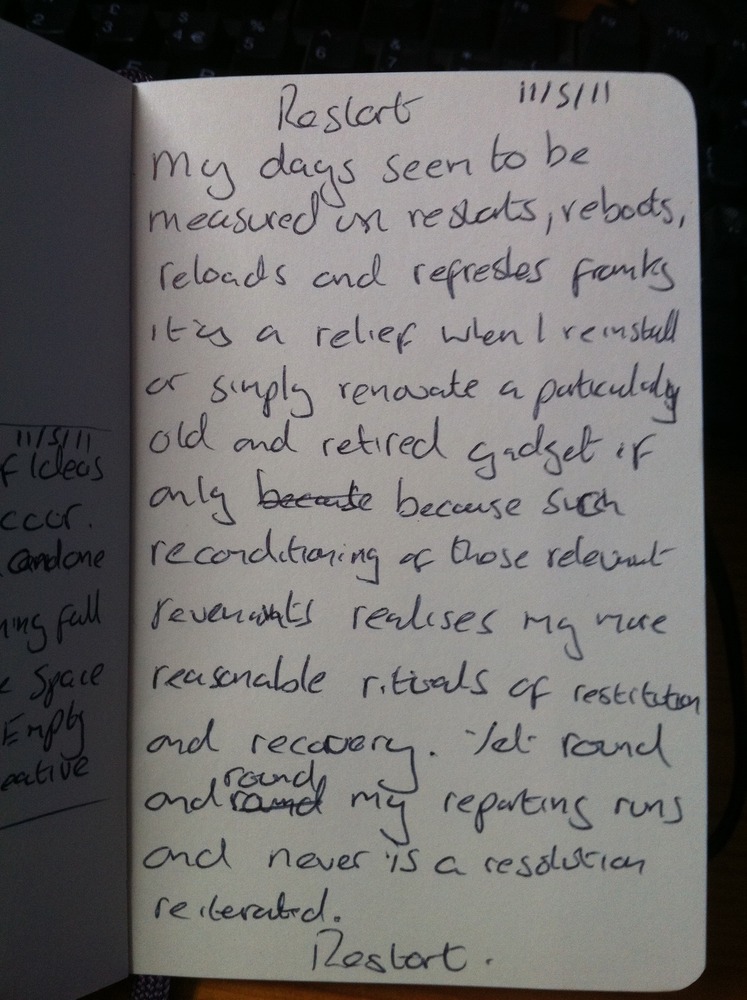 Restart 11/5/11
My days seem to be
measured in restarts, reboots,
reloads and refreshes frankly
it is a relief when I reinstall
or simply renovate a particularly
old and retired gadget if
only because because such
reconditioning of those relevant
revenants realises my more
reasonable rituals of restitution
and recovery. Yet round
round
and round my reporting runs
and never is a resolution
reiterated.
Restart.
11/5/11
f Ideas
ccur.
Condone
ning full
e Space
Empty
eative